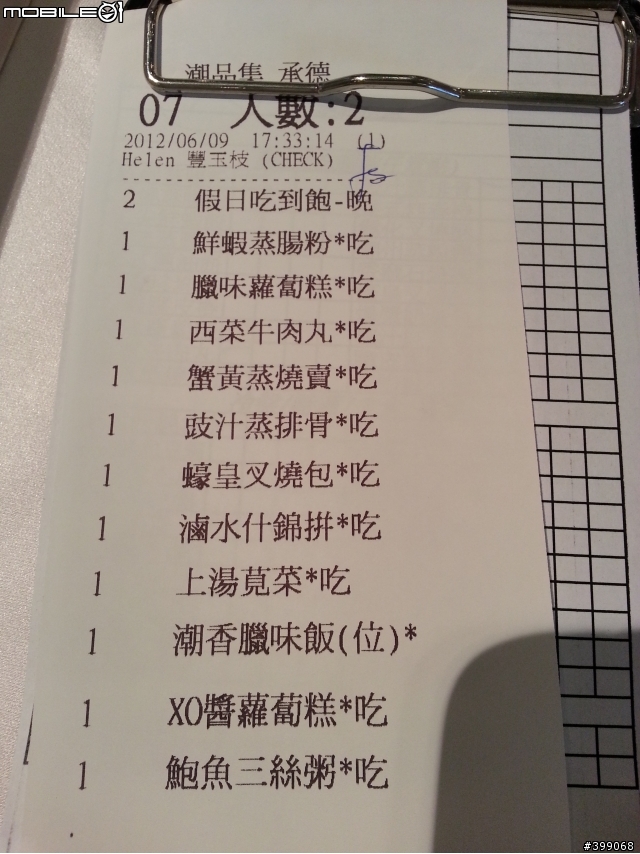 MOBILE01
潮品集 承德
07 人數:2
2012/06/09 17:33:14 (1)
Helen 豐玉枝 (CHECK)
2 假日吃到飽-晚
1 鮮蝦蒸腸粉*吃
1 臘味蘿蔔糕*吃
1 西菜牛肉丸*吃
1 蟹黃蒸燒賣*吃
1 豉汁蒸排骨*吃
1 蠔皇叉燒包*吃
1 滷水什錦拼*吃
1 上湯莧菜*吃
1 潮香臘味飯(位)*
1 XO醬蘿蔔糕*吃
1 鮑魚三絲粥*吃
#399068